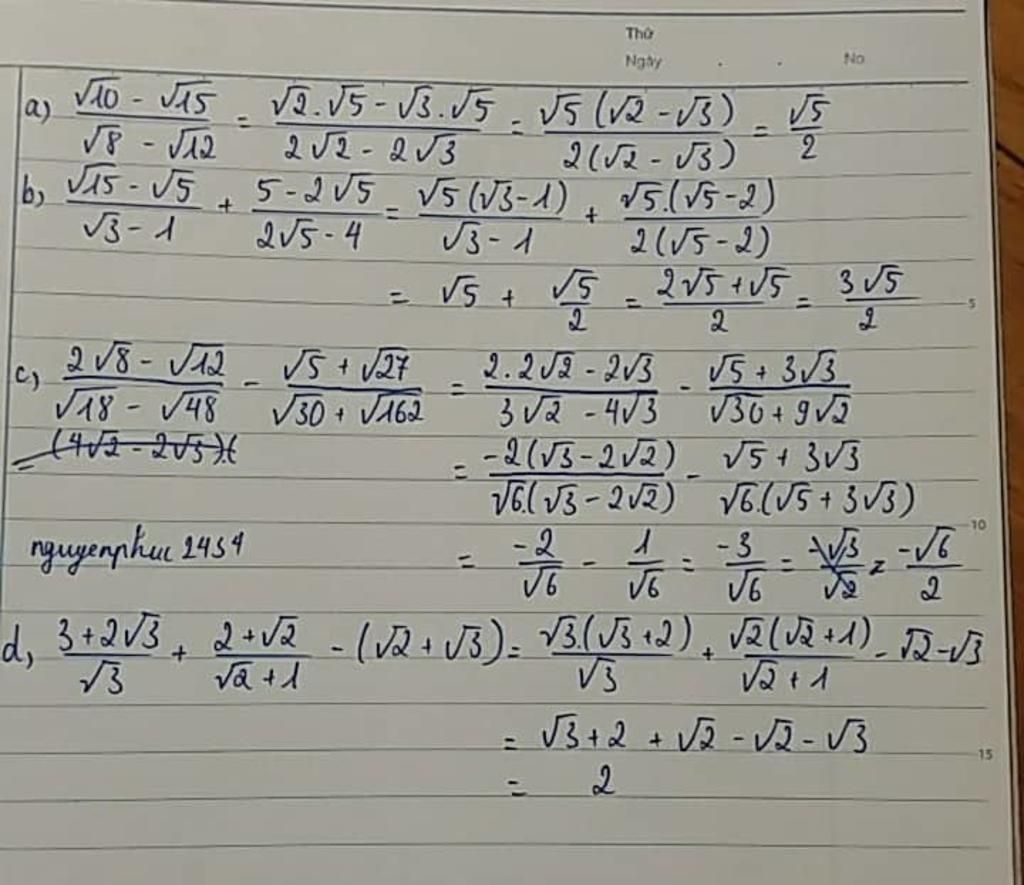 Thứ
Ngày . . No
a) \frac{√10 - √15}{√8 - √12} = \frac{√2.√5 - √3.√5}{2√2 - 2√3} = \frac{√5(√2 - √3)}{2(√2 - √3)} = \frac{√5}{2}
b) \frac{√15 - √5}{√3 - 1} + \frac{5 - 2√5}{2√5 - 4} = \frac{√5(√3 - 1)}{√3 - 1} + \frac{√5.(√5 - 2)}{2(√5 - 2)}
= √5 + \frac{√5}{2} = \frac{2√5 + √5}{2} = \frac{3√5}{2} 5
c) \frac{2√8 - √12}{√18 - √48} - \frac{√5 + √27}{√30 + √162} = \frac{2.2√2 - 2√3}{3√2 - 4√3} - \frac{√5 + 3√3}{√30 + 9√2}
= (4√2 - 2√3).( = \frac{-2(√3 - 2√2)}{√6.(√3 - 2√2)} - \frac{√5 + 3√3}{√6.(√5 + 3√3)}
10
nguyenphuc 2434 = \frac{-2}{√6} - \frac{1}{√6} = \frac{-3}{√6} = \frac{-√3}{√2} = \frac{-√6}{2}
d, \frac{3 + 2√3}{√3} + \frac{2 + √2}{√2 + 1} - (√2 + √3) = \frac{√3.(√3 + 2)}{√3} + \frac{√2(√2 + 1)}{√2 + 1} - √2 - √3
= √3 + 2 + √2 - √2 - √3 15
= 2